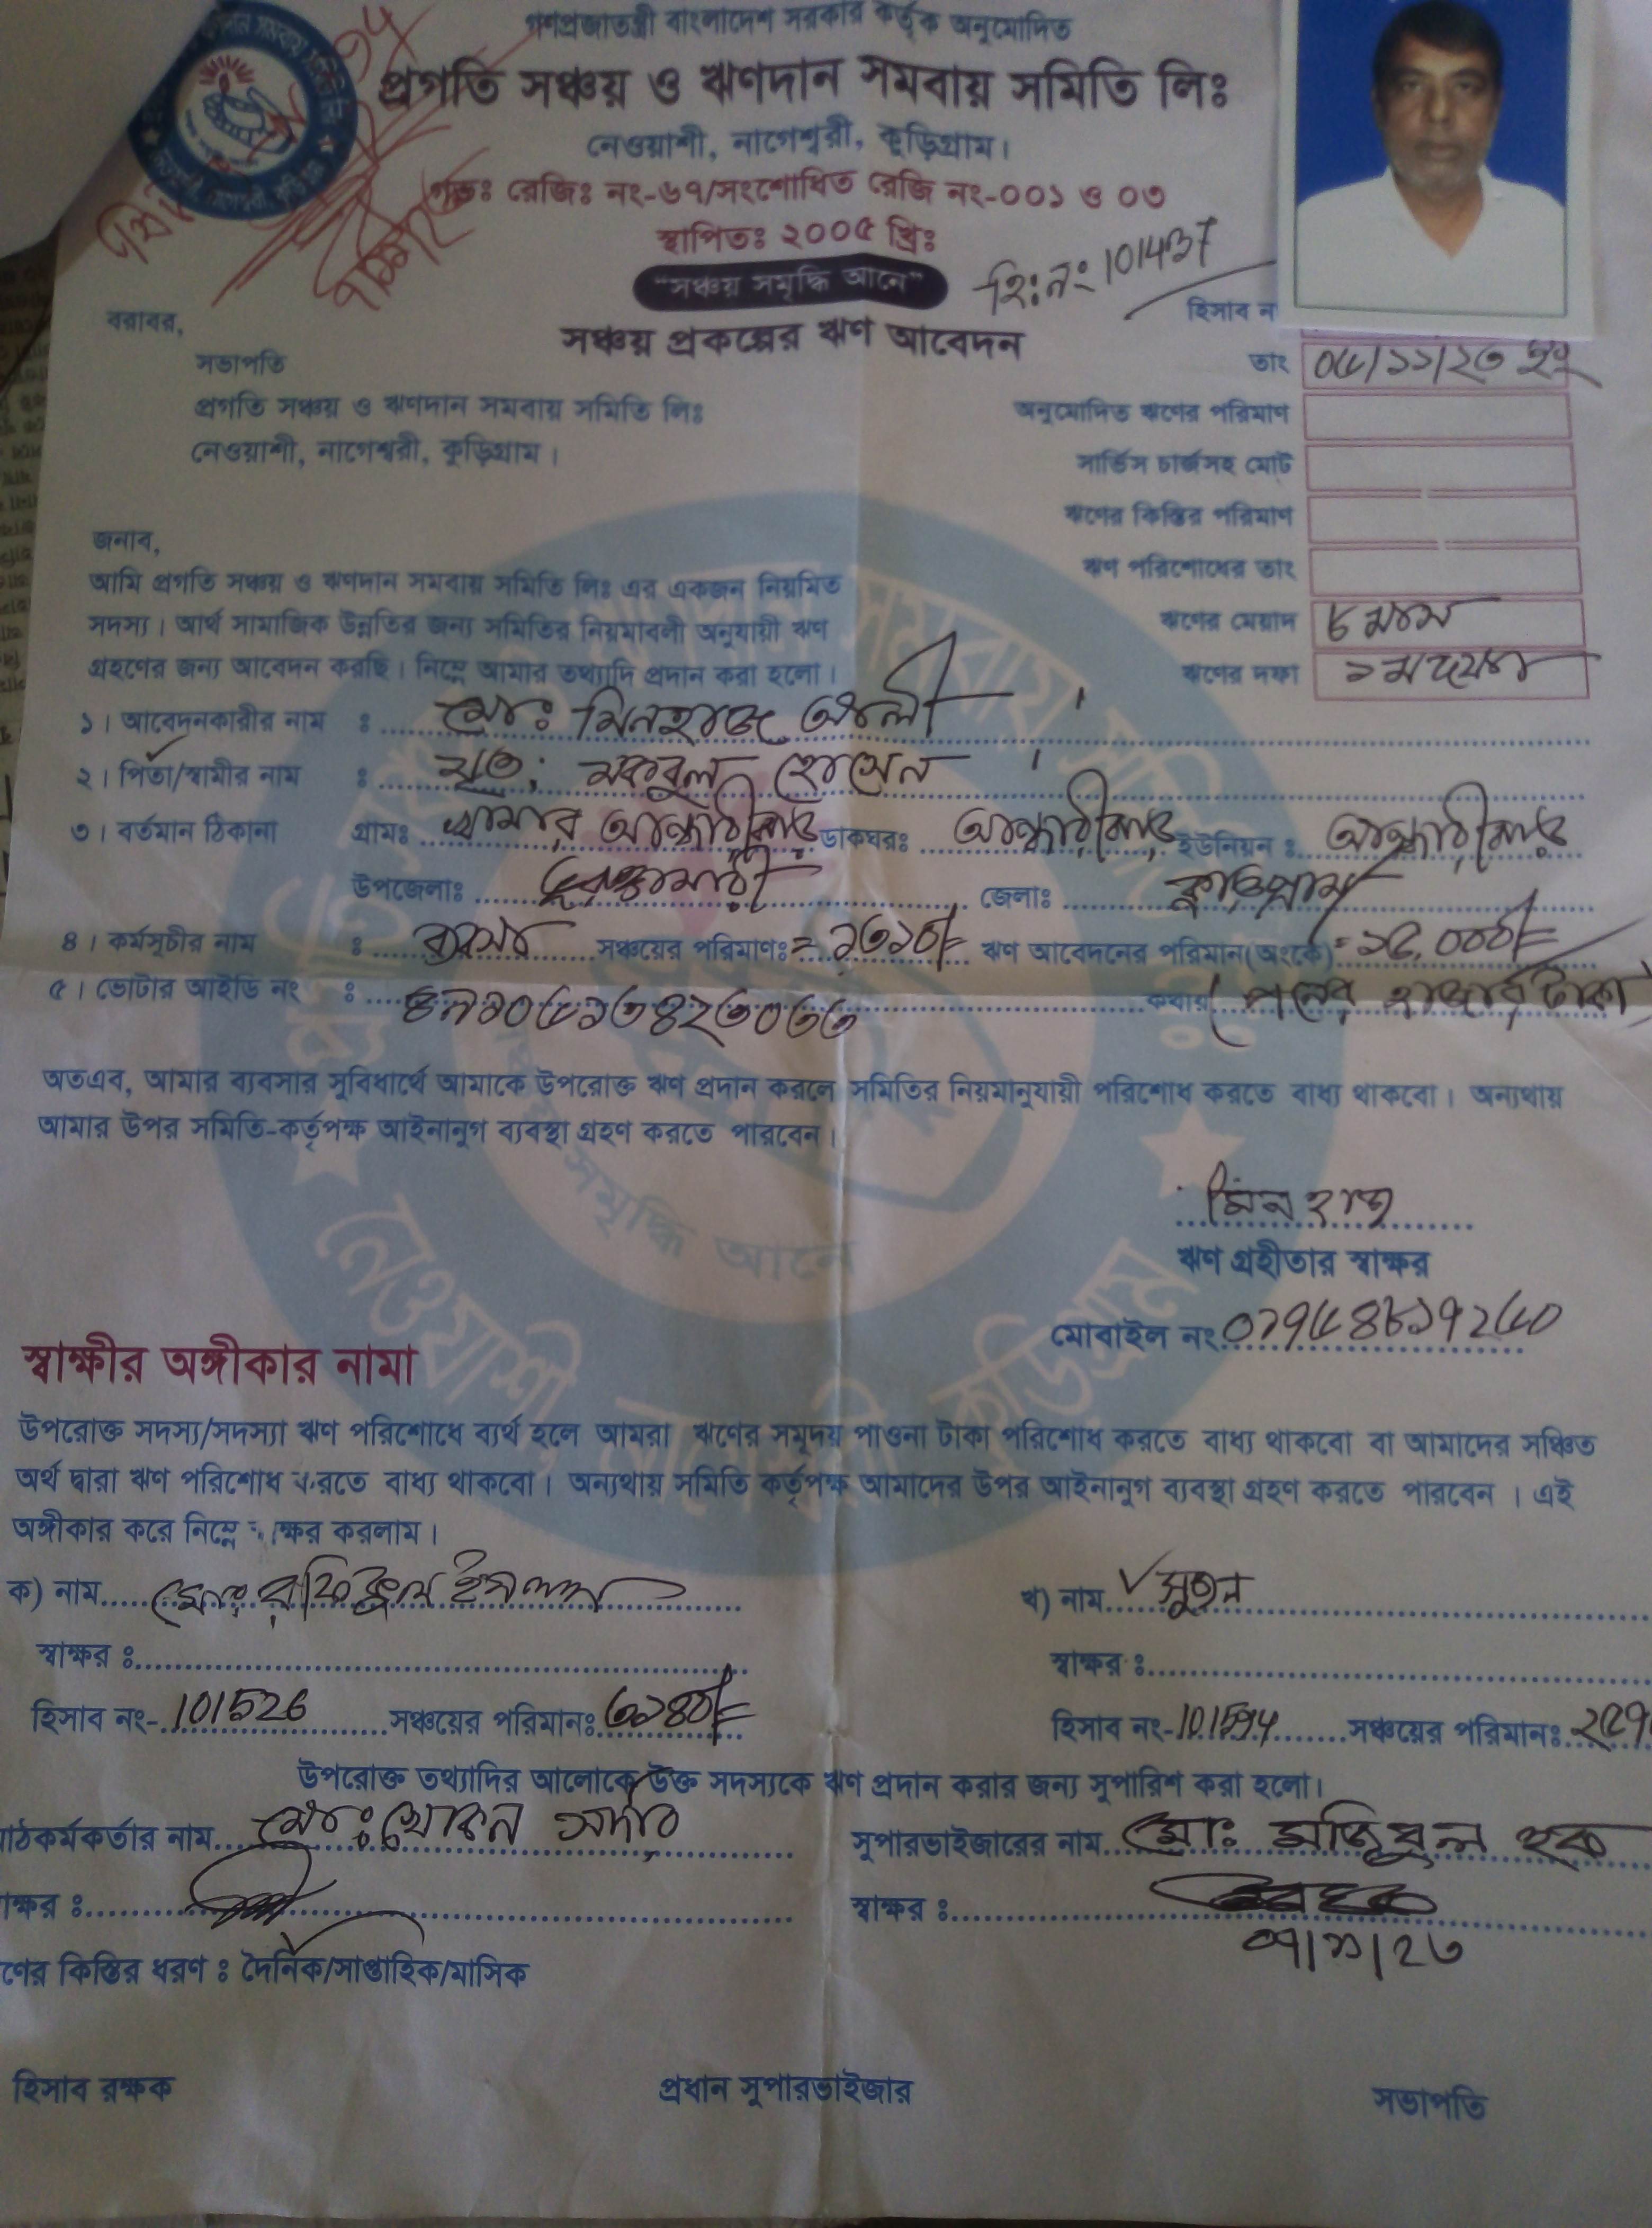 গণপ্রজাতন্ত্রী বাংলাদেশ সরকার কর্তৃক অনুমোদিত
প্রগতি সঞ্চয় ও ঋণদান সমবায় সমিতি লিঃ
নেওয়াশী, নাগেশ্বরী, কুড়িগ্রাম।
গভঃ রেজিঃ নং-৬৭/সংশোধিত রেজি নং-০০১ ও ০৩
স্থাপিতঃ ২০০৫ খ্রিঃ
"সঞ্চয় সমৃদ্ধি আনে"
হিঃ নং 101437
হিসাব ন
সঞ্চয় প্রকল্পের ঋণ আবেদন
বরাবর,
সভাপতি
প্রগতি সঞ্চয় ও ঋণদান সমবায় সমিতি লিঃ
নেওয়াশী, নাগেশ্বরী, কুড়িগ্রাম।
তাং ০৫/১১/২৩ ইং
অনুমোদিত ঋণের পরিমাণ
সার্ভিস চার্জসহ মোট
ঋণের কিস্তির পরিমাণ
ঋণ পরিশোধের তাং
ঋণের মেয়াদ ৮ মাস
ঋণের দফা ১ম দফা
জনাব,
আমি প্রগতি সঞ্চয় ও ঋণদান সমবায় সমিতি লিঃ এর একজন নিয়মিত
সদস্য। আর্থ সামাজিক উন্নতির জন্য সমিতির নিয়মাবলী অনুযায়ী ঋণ
গ্রহণের জন্য আবেদন করছি। নিম্নে আমার তথ্যাদি প্রদান করা হলো।
১। আবেদনকারীর নাম : মোঃ মিনহাজ আলী
২। পিতা/স্বামীর নাম : মৃত: মকবুল হোসেন
৩। বর্তমান ঠিকানা গ্রামঃ খামার আন্ধারীঝাড় ডাকঘরঃ আন্ধারীঝাড় ইউনিয়ন : আন্ধারীঝাড়
উপজেলাঃ ভুরুঙ্গামারী জেলাঃ কুড়িগ্রাম
৪। কর্মসূচীর নাম : ব্যবসা সঞ্চয়ের পরিমাণঃ = ১৩১০/= ঋণ আবেদনের পরিমান(অংকে) = ১৫,০০০/=
৫। ভোটার আইডি নং : কথায় (পনের হাজার টাকা)
অতএব, আমার ব্যবসার সুবিধার্থে আমাকে উপরোক্ত ঋণ প্রদান করলে সমিতির নিয়মানুযায়ী পরিশোধ করতে বাধ্য থাকবো। অন্যথায়
আমার উপর সমিতি-কর্তৃপক্ষ আইনানুগ ব্যবস্থা গ্রহণ করতে পারবেন।
মিনহাজ
ঋণ গ্রহীতার স্বাক্ষর
মোবাইল নং ০১৭৫৪৮১৭২৫০
স্বাক্ষীর অঙ্গীকার নামা
উপরোক্ত সদস্য/সদস্যা ঋণ পরিশোধে ব্যর্থ হলে আমরা ঋণের সমূদয় পাওনা টাকা পরিশোধ করতে বাধ্য থাকবো বা আমাদের সঞ্চিত
অর্থ দ্বারা ঋণ পরিশোধ করতে বাধ্য থাকবো। অন্যথায় সমিতি কর্তৃপক্ষ আমাদের উপর আইনানুগ ব্যবস্থা গ্রহণ করতে পারবেন । এই
অঙ্গীকার করে নিম্নে ক্ষর করলাম।
ক) নাম মোঃ রফিকুল ইসলাম খ) নাম সুজন
স্বাক্ষর : স্বাক্ষর :
হিসাব নং- 101526 সঞ্চয়ের পরিমানঃ ৩১৪০/= হিসাব নং- 101594 সঞ্চয়ের পরিমানঃ ২৫৭
উপরোক্ত তথ্যাদির আলোকে উক্ত সদস্যকে ঋণ প্রদান করার জন্য সুপারিশ করা হলো।
াঠকর্মকর্তার নাম মোঃ খোকন সর্দার সুপারভাইজারের নাম মোঃ মজিবুল হক
াক্ষর : স্বাক্ষর :
০৭/১১/২৩
ণের কিস্তির ধরণ : দৈনিক/সাপ্তাহিক/মাসিক
হিসাব রক্ষক প্রধান সুপারভাইজার সভাপতি